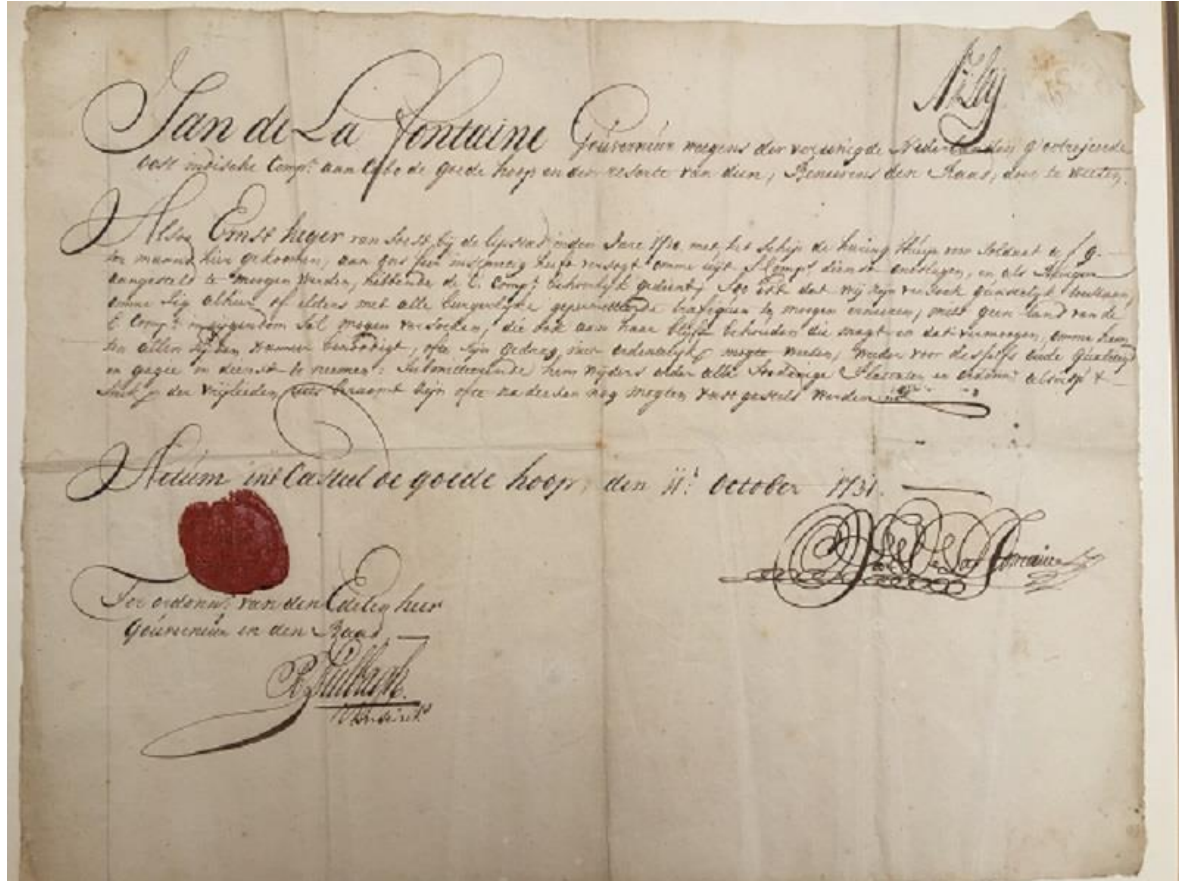 Jan de La fontaine Gouverneur wegens der vereenigde Nederlandsen g'octroijeerde
Oost indische Compe. aan Cabo de goede hoop en den resorte van dien, Benevens den Raad, doen te weeten,
Alsoo Ernst heger van Soest bij de lipstad inden Jare met het schip de huis voor Soldaat a f 9.—
ter maand hier gekoomen, aan ons heeft versogt omme uijt 's Comps. dienst ontslagen, en als Burger
aangesteld te mogen werden, hebbende de E. Compe. behoorlijk gedient; Soo Ist dat wij zijn versoek gunstelijk toestaan,
omme sig alhier of elders met alle burgerlijke gepermitteerde trafiquen te mogen erneeren, mits geen land van de
E. Compe. in eijgendom sal mogen versoeken, die ook aan haar blijft behouden die magt en dat vermoogen, omme hem
ten allen tijden, benodigt, ofte sijn gedrag niet ordentelijk mogte weesen, weder voor desselfs oude qualiteijt
en gagie in dienst te neemen: Submitteerende hem wijders onder alle sodanige Placcaten en ordonn: als
der vrijlieden, beraamt zijn ofte na desen nog mogten vast gesteld werden
Actum int Casteel de goede hoop, den 11e. October 1731.
Ter ordonne: van den Edelen heer
Gouverneur en den Raad
Jan de La Fontaine
R Tulbagh.